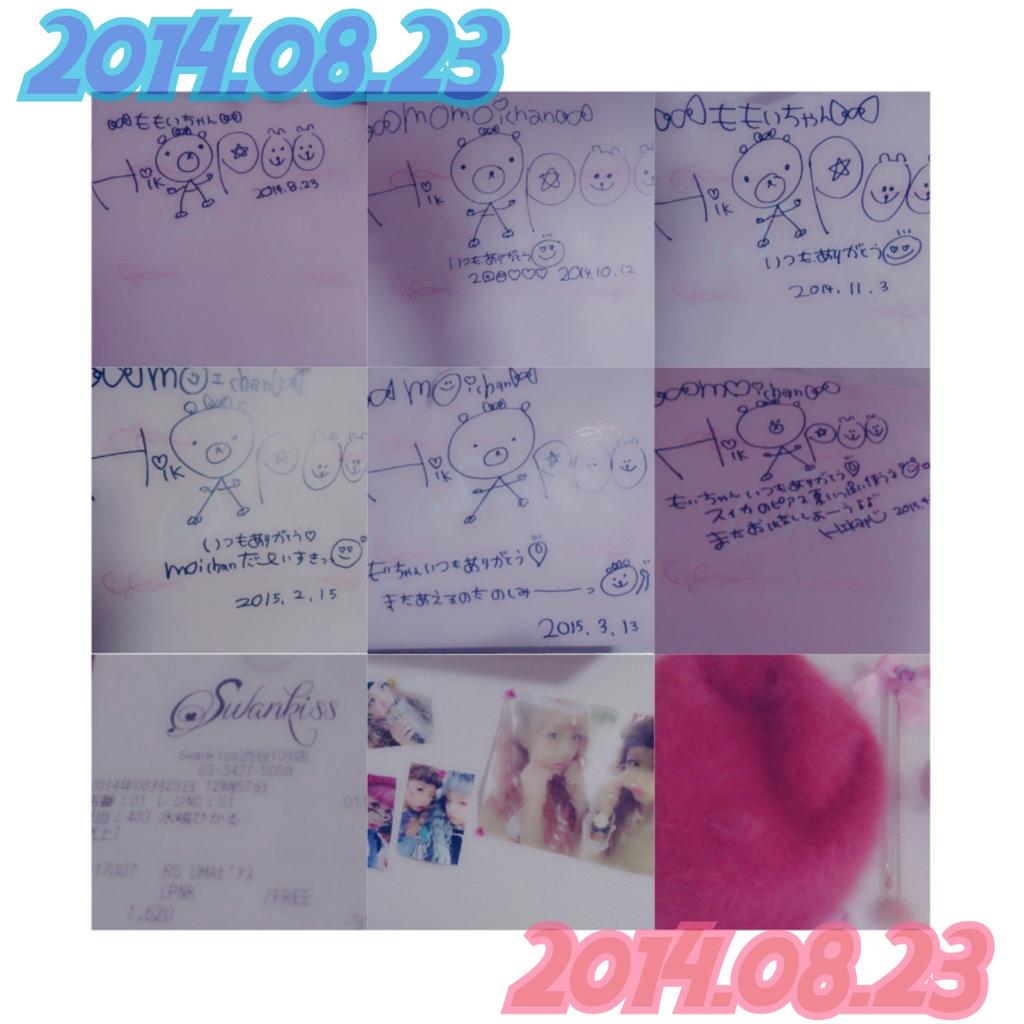 2014.08.23
ももいちゃん
2014.8.23
momoichan
いつもありがとう
2回目♡♡♡ 2014.10.12
ももいちゃん
いつもありがとう
2014.11.3
chan
いつもありがとう♡
moichanだいすきっ
2015.2.15
ichan
いちゃんいつもありがとう
またあえるのたのしみーっ
2015.3.13
ichan
もいちゃん いつもありがとう
スイカのピアス
また
Swankiss
Swankiss渋谷109店
03-3477-5058
2014年08月23日 12時57分
番:01 レジNO:01
当:403 水嶋ひかる
17007 RS UMAピアス
(PNK /FREE
1,620
2014.08.23